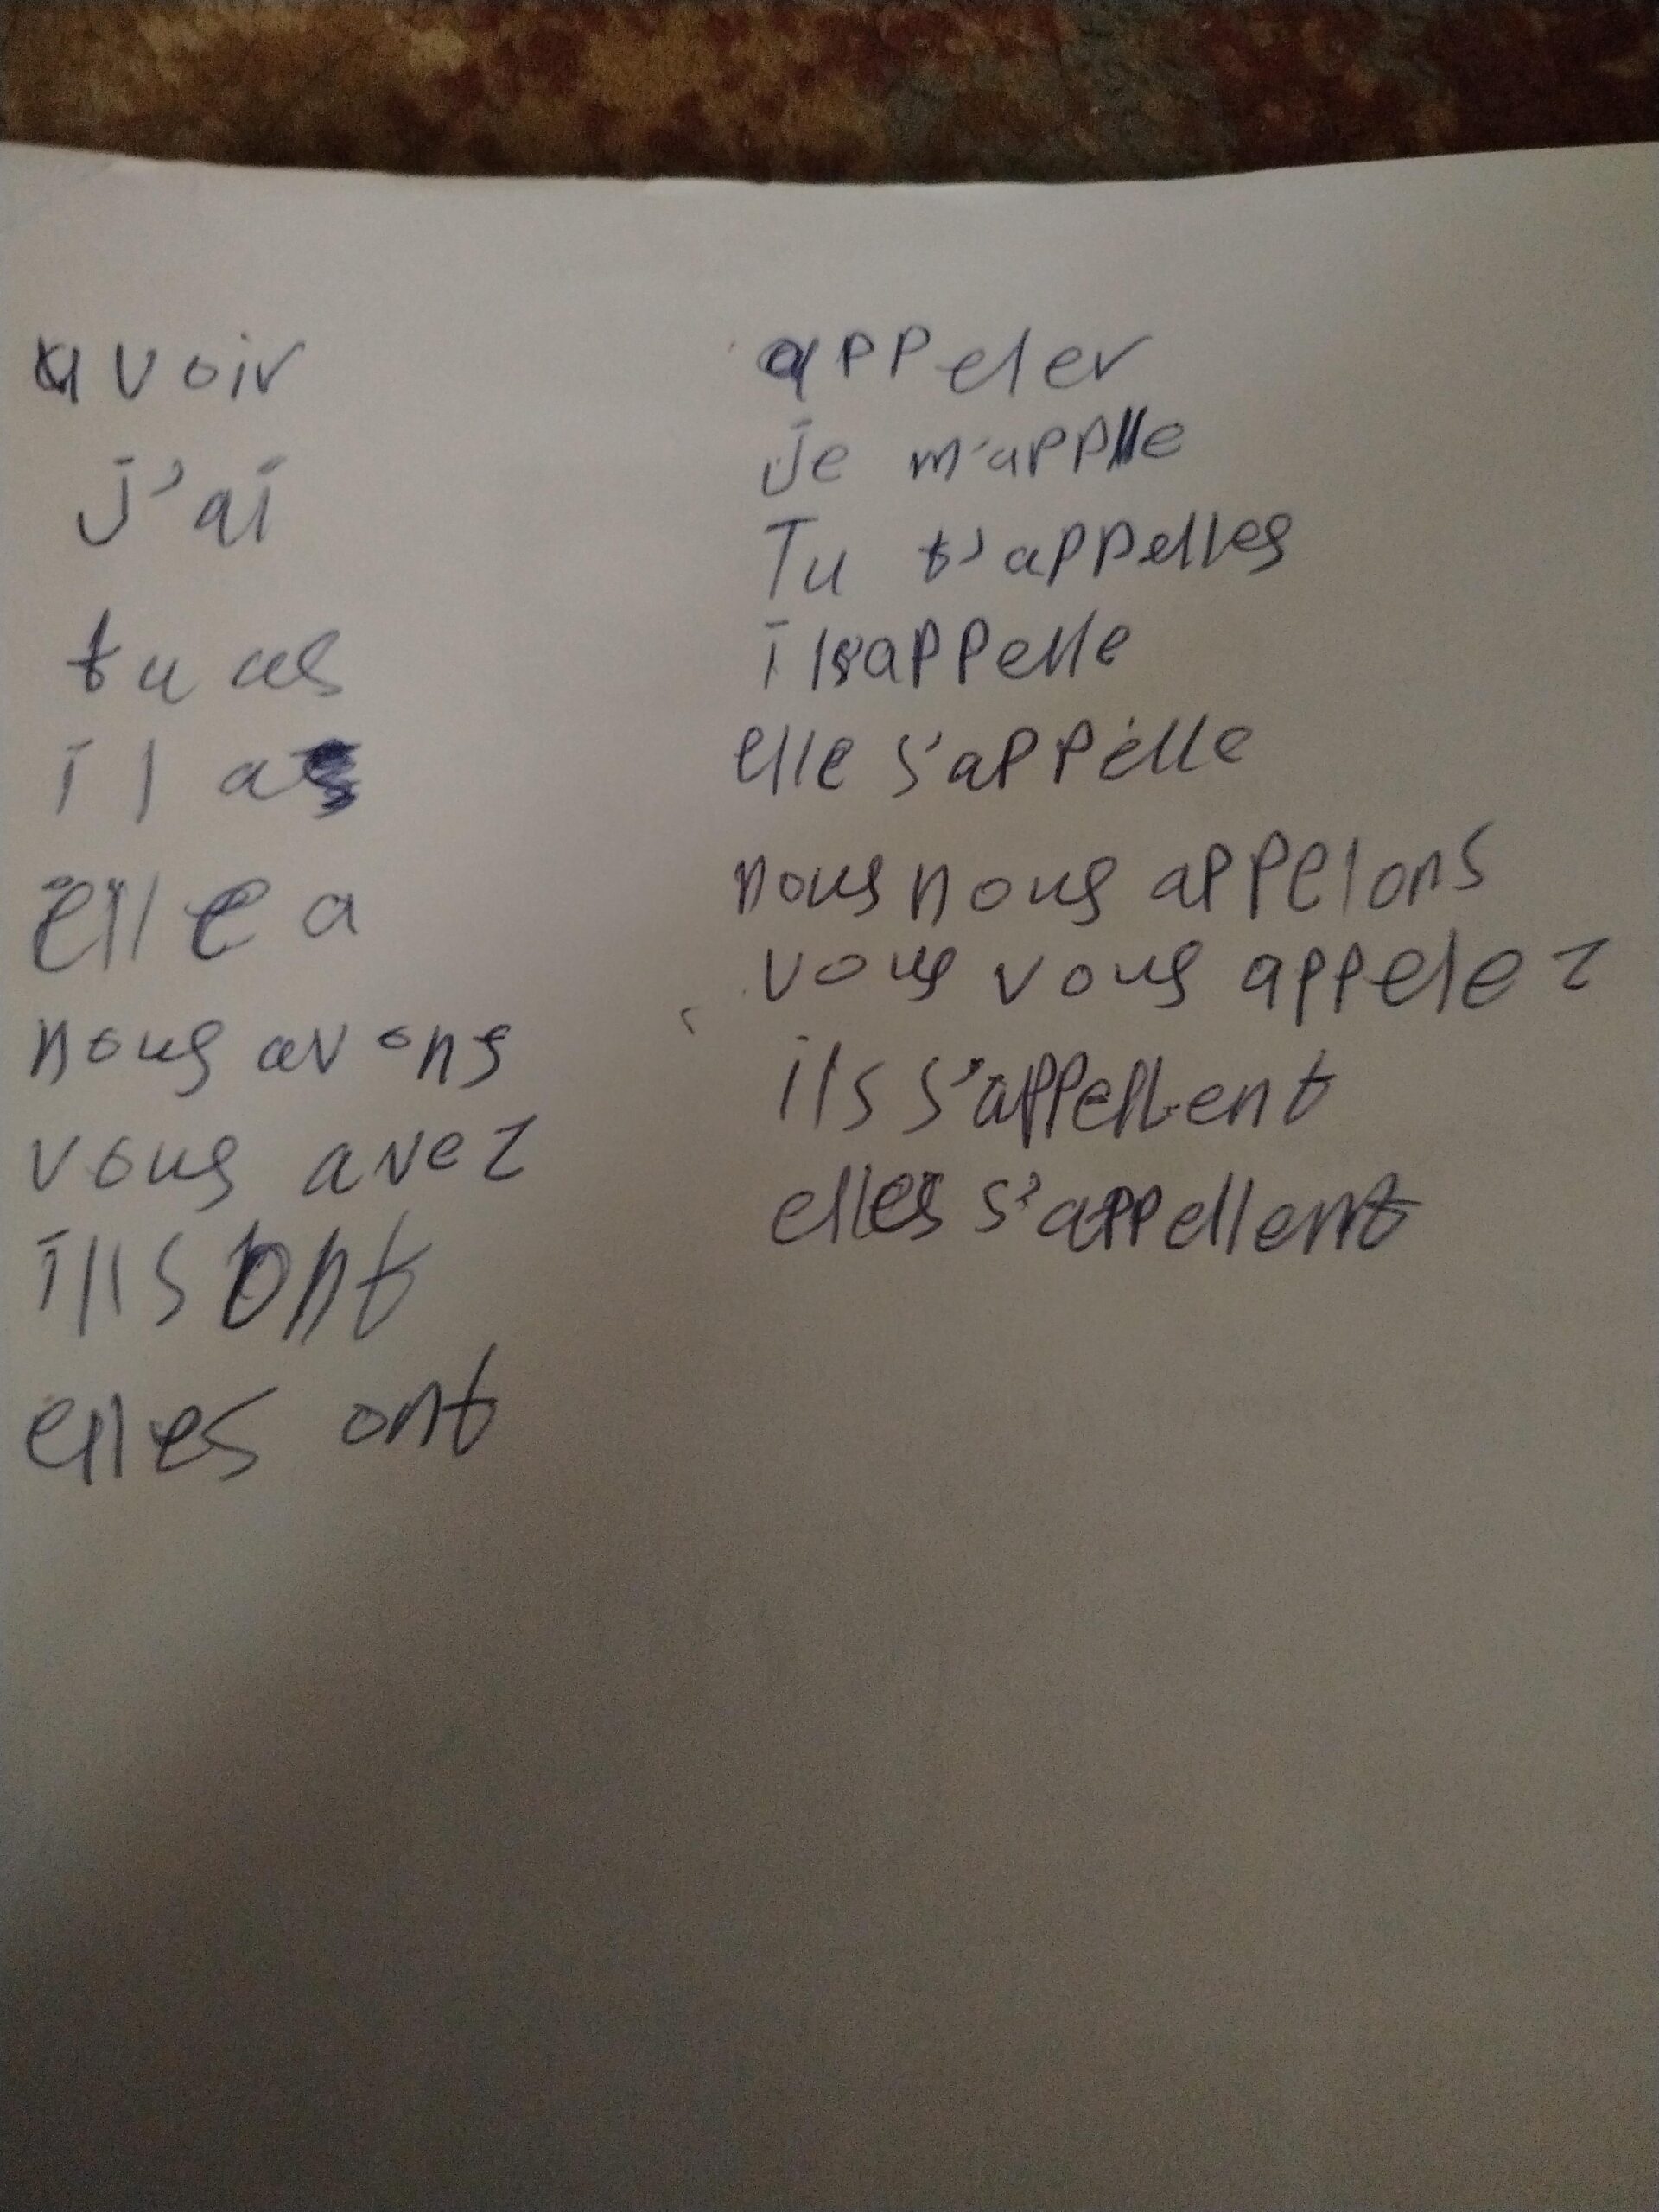 avoir
j'ai
tu as
il a
elle a
nous avons
vous avez
ills ont
elles ont
appeler
je m'applle
Tu t'appelles
ilsappelle
elle s'appelle
nous nous appelons
vous vous appelez
ils s'appellent
elles s'appellent